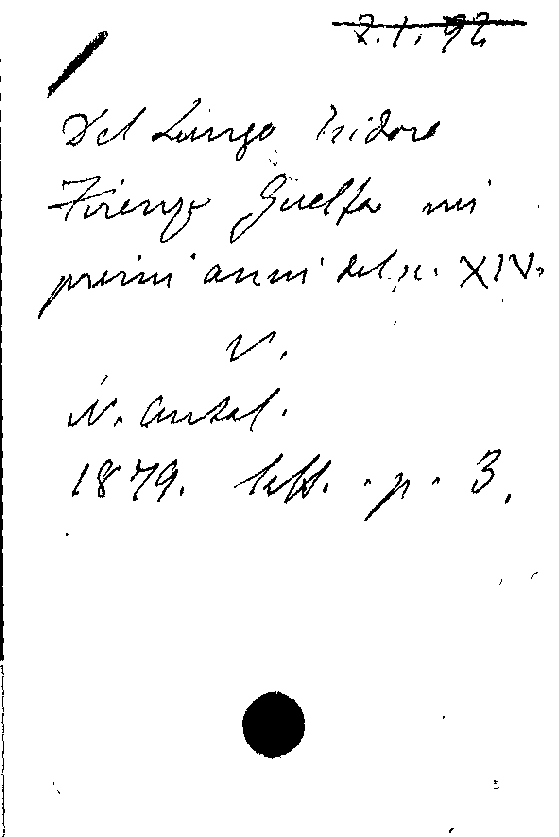 2.1.92
Del Lungo Isidoro
Firenze Guelfa nei
primi anni del s. XIV.
V.
N. Antol.
1879. Sett. p. 3.